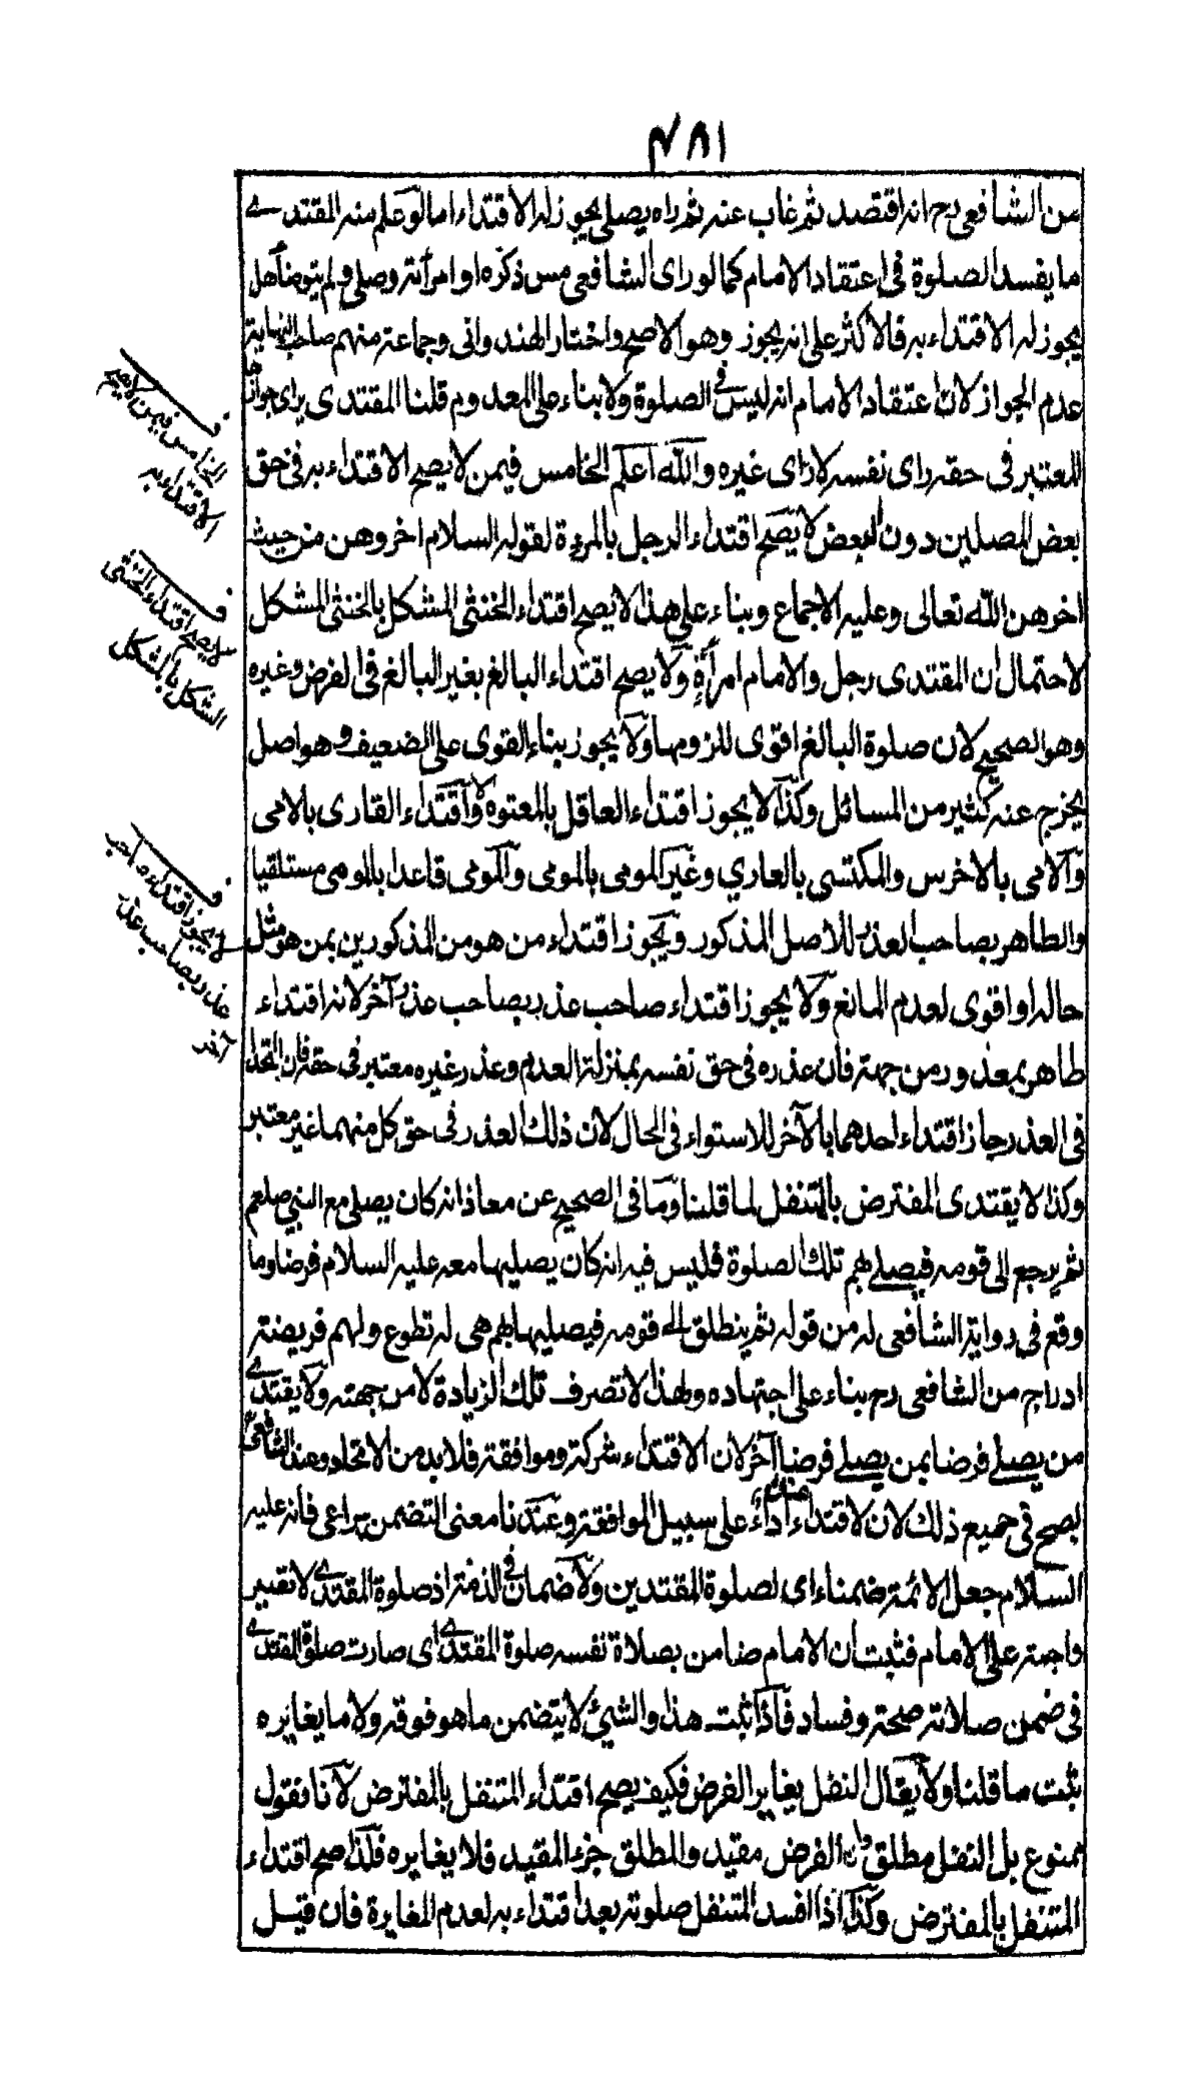 ٤٨١
من الشافعى رح انه اقتصد ثم غاب عنه ثم راه يصلى يجوز له الاقتداء اما لو علم منه المقتدے
ما يفسد الصلوة فى اعتقاد الامام كما لو راى الشافعى مس ذكره او امرأته وصلى ولم يتوضأ هل
يجوز له الاقتداء به فالاكثر على انه يجوز وهو الاصح واختار الهندوانى وجماعة منهم صاحب النهاية
عدم الجواز لان اعتقاد الامام انه ليس فى الصلوة ولا بناء على المعدوم قلنا المقتدى يراى جوازها
المعتبر فى حقه راى نفسه لا راى غيره والله اعلم الخامس فيمن لا يصح الاقتداء به فى حق
بعض المصلين دون البعض لا يصح اقتداء الرجل بالمرءة لقوله السلام اخروهن من حيث
اخرهن الله تعالى وعليه الاجماع وبناء على هذا لا يصح اقتداء الخنثى المشكل بالخنثى المشكل
لاحتمال ان المقتدى رجل والامام امرأة ولا يصح اقتداء البالغ بغير البالغ فى الفرض وغيره
وهو الصحيح لان صلوة البالغ اقوى للزومها ولا يجوز بناء القوى على الضعيف وهو اصل
يخرج عنه كثير من المسائل وكذا لا يجوز اقتداء العاقل بالمعتوه ولا اقتداء القارى بالامى
والامى بالاخرس والمكتسى بالعاري وغير المومى بالمومى والمومى قاعدا بالمومى مستلقيا
والطاهر بصاحب العذر للاصل المذكور ويجوز اقتداء من هو من المذكورين بمن هو مثل
حاله او اقوى لعدم المانع ولا يجوز اقتداء صاحب عذر بصاحب عذر آخر لانه اقتداء
طاهر بمعذور من جهة فان عذره فى حق نفسه بمنزلة العدم وعذر غيره معتبر فى حقه فان اتحدا
فى العذر جاز اقتداء احدهما بالآخر للاستواء فى الحال لان ذلك العذر فى حق كل منهما غير معتبر
وكذا لا يقتدى المفترض بالمتنفل لما قلنا وما فى الصحيح عن معاذ انه كان يصلى مع النبي صلعم
ثم يرجع الى قومه فيصلے بهم تلك الصلوة فليس فيه انه كان يصليها معه عليه السلام فرضا وما
وقع فى رواية الشافعى له من قوله ثم ينطلق الے قومه فيصليها بهم هى له تطوع ولهم فريضة
ادراج من الشافعى رح بناء على اجتهاده ولهذا لا تصرف تلك الزيادة لا من جهته ولا يقتدے
من يصلے فرضا بمن يصلے فرضا آخر لان الاقتداء شركة وموافقة فلا بد من الاتحاد وعند الشافعى
يصح فى جميع ذلك لان لاقتداء عنده اداء على سبيل الموافقة وعندنا معنى التضمن يراعى فانه عليه
السلام جعل الائمة ضمناء اى لصلوة المقتدين ولا ضمان فى الذمة اذ صلوة المقتدے لا تصير
واجبة على الامام فثبت ان الامام ضامن بصلاة نفسه صلوة المقتدے اى صارت صلوة المقتدے
فى ضمن صلاته صحة وفساد فاذا ثبت هذا والشئ لا يتضمن ما هو فوقه ولا ما يغايره
ثبت ما قلنا ولا يقال النفل يغاير الفرض فكيف يصح اقتداء المتنفل بالمفترض لانا نقول
ممنوع بل النفل مطلق وان الفرض مقيد والمطلق جزء المقيد فلا يغايره فلذا صح اقتداء
المتنفل بالمفترض وكذا اذا افسد المتنفل صلوته بعد اقتداء به لعدم المغايرة فان قيل
الخامس فيمن لا يصح
الاقتداء به
لا يصح اقتداء الخنثى
الشكل بالمشكل
لا يجوز اقتداء صاحب
عذر بصاحب عذر
آخر